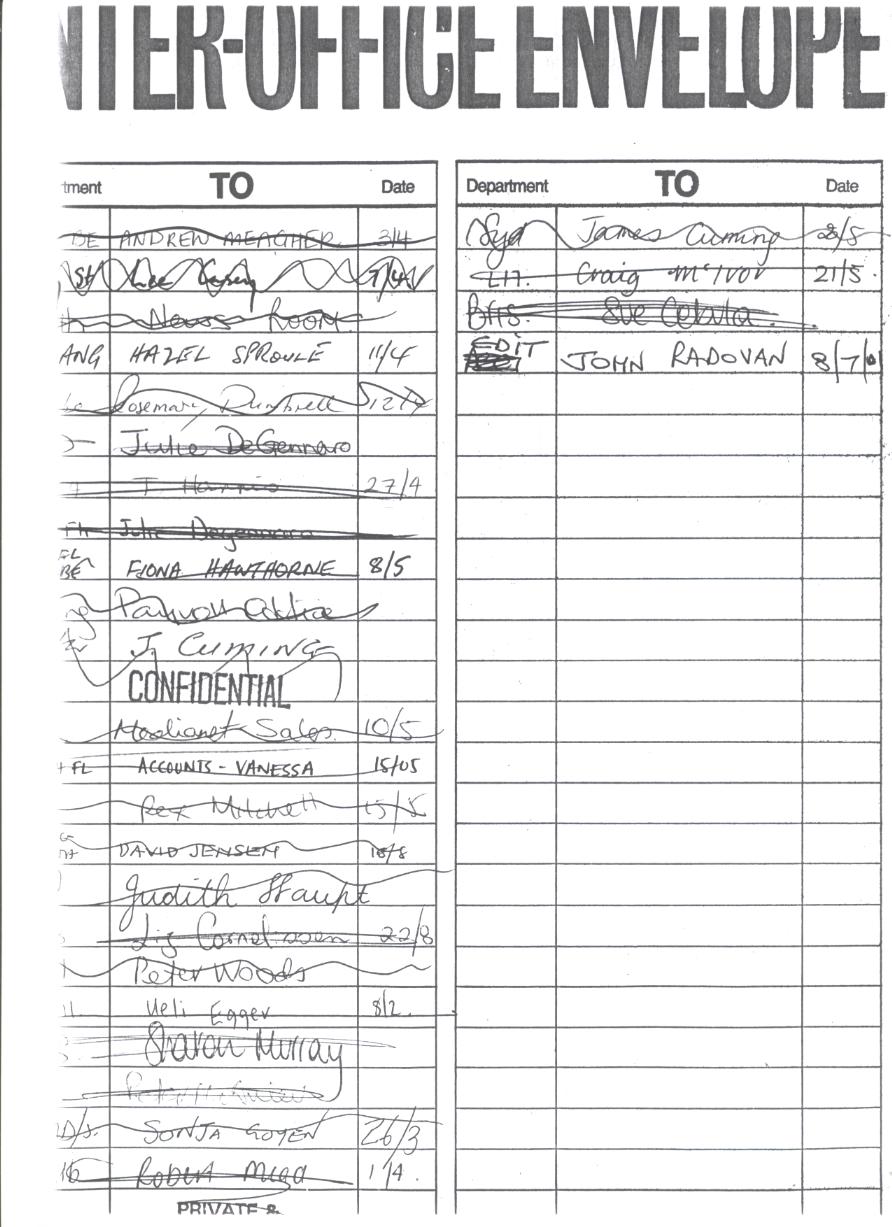 NTER-OFFICE ENVELOPE
tment TO Date
BE ANDREW MEAGHER 3/4
St Lee 7/4
News Room
ANG HAZEL SPROULE 11/4
Rosemary
Julie DeGennaro
T 27/4
FH Julie Degennaro
FL
BE FIONA HAWTHORNE 8/5
ng
J. CUMING
CONFIDENTIAL
Medianet Sales 10/5
FL ACCOUNTS - VANESSA 15/05
Rex Mitchell 15/5
DAVID JENSEN
Judith Haupt
Liz Cornelissen 22/8
Peter Woods
Ueli Egger 8/2
Sharon Murray
Peter
SONJA GOYEN 26/3
Robert 1/4
PRIVATE &
Department TO Date
Syd James Cuming
LH. Craig McIvor 21/5
Bris. Sue
EDIT JOHN RADOVAN 8/7/